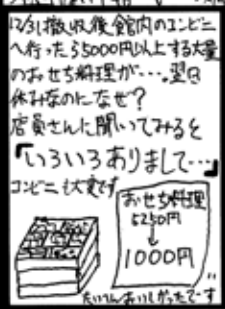 12/31撤収後館内のコンビニ
へ行ったら5000円以上する大量
のおせち料理が・・・。翌日
休みなのになぜ？
店員さんに聞いてみると
「いろいろありまして・・・」
コンビニも大変です
おせち料理
5250円
↓
1000円
たいへんおいしかったでーす